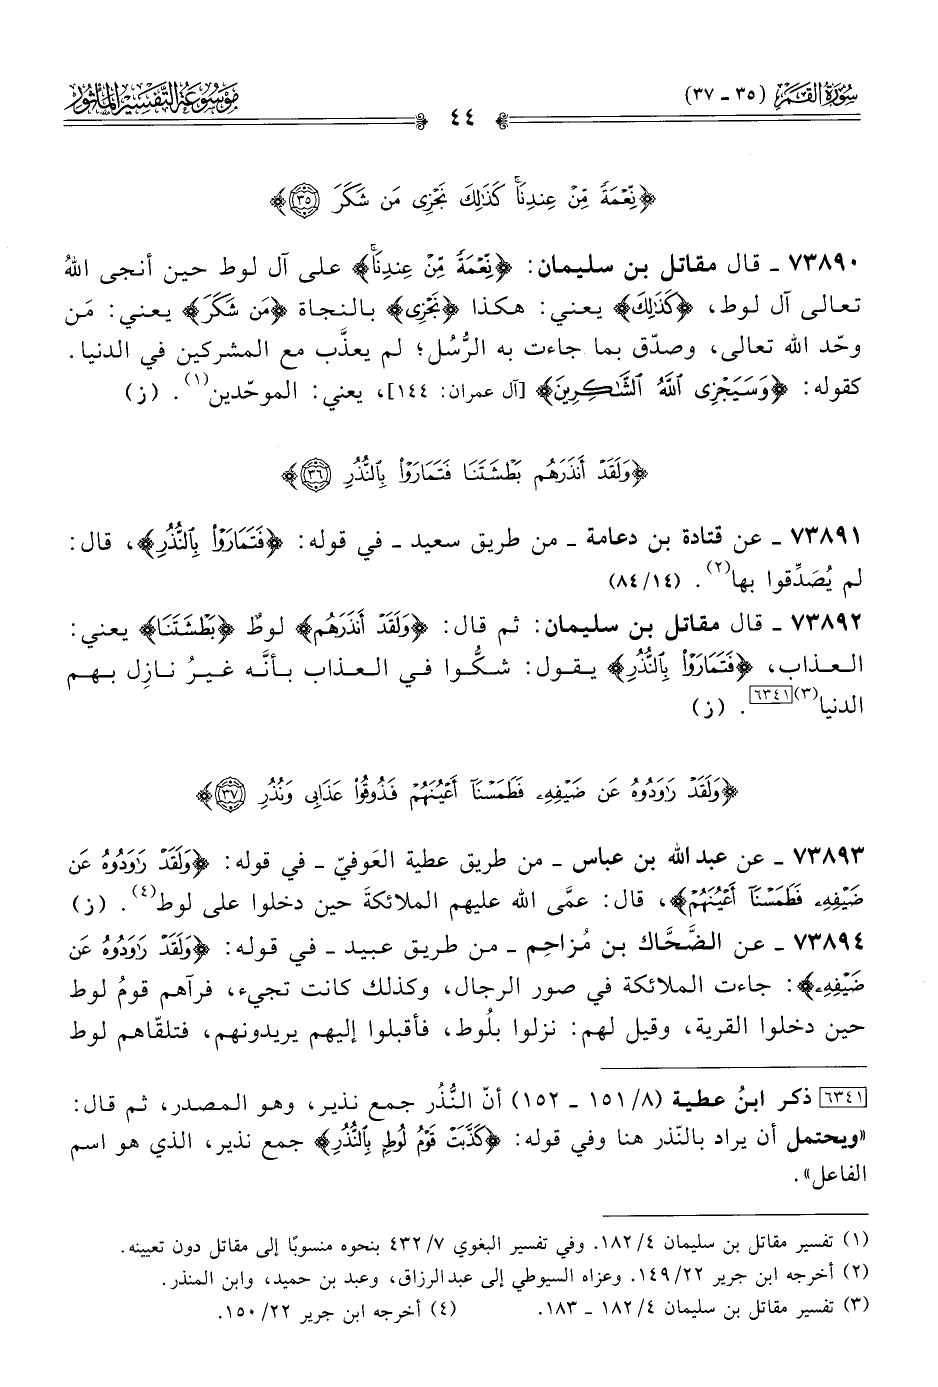 سُورَةُ القَمَر (٣٥ - ٣٧)
٤٤
مَوْسُوعَةُ التَّفْسِيرِ المَأْثُور
﴿نِّعْمَةً مِّنْ عِندِنَاۚ كَذَٰلِكَ نَجْزِى مَن شَكَرَ ۝٣٥﴾
٧٣٨٩٠ - قال مقاتل بن سليمان: ﴿نِّعْمَةً مِّنْ عِندِنَاۚ﴾ على آل لوط حين أنجى اللهُ
تعالى آل لوط، ﴿كَذَٰلِكَ﴾ يعني: هكذا ﴿نَجْزِى﴾ بالنجاة ﴿مَن شَكَرَ﴾ يعني: مَن
وحّد الله تعالى، وصدّق بما جاءت به الرُّسُل؛ لم يعذَّب مع المشركين في الدنيا.
كقوله: ﴿وَسَيَجْزِى ٱللَّهُ ٱلشَّٰكِرِينَ﴾ [آل عمران: ١٤٤]، يعني: الموحّدين(١). (ز)
﴿وَلَقَدْ أَنذَرَهُم بَطْشَتَنَا فَتَمَارَوْاْ بِٱلنُّذُرِ ۝٣٦﴾
٧٣٨٩١ - عن قتادة بن دعامة - من طريق سعيد - في قوله: ﴿فَتَمَارَوْاْ بِٱلنُّذُرِ﴾، قال:
لم يُصَدِّقوا بها(٢). (٨٤/١٤)
٧٣٨٩٢ - قال مقاتل بن سليمان: ثم قال: ﴿وَلَقَدْ أَنذَرَهُم﴾ لوطٌ ﴿بَطْشَتَنَا﴾ يعني:
العذاب، ﴿فَتَمَارَوْاْ بِٱلنُّذُرِ﴾ يقول: شكُّوا في العذاب بأنَّه غيرُ نازِل بهم
الدنيا(٣)[٦٣٤١]. (ز)
﴿وَلَقَدْ رَٰوَدُوهُ عَن ضَيْفِهِۦ فَطَمَسْنَآ أَعْيُنَهُمْ فَذُوقُواْ عَذَابِى وَنُذُرِ ۝٣٧﴾
٧٣٨٩٣ - عن عبد الله بن عباس - من طريق عطية العَوفيّ - في قوله: ﴿وَلَقَدْ رَٰوَدُوهُ عَن
ضَيْفِهِۦ فَطَمَسْنَآ أَعْيُنَهُمْ﴾، قال: عمَّى الله عليهم الملائكةَ حين دخلوا على لوط(٤). (ز)
٧٣٨٩٤ - عن الضَّحَّاك بن مُزاحِم - من طريق عبيد - في قوله: ﴿وَلَقَدْ رَٰوَدُوهُ عَن
ضَيْفِهِۦ﴾: جاءت الملائكة في صور الرجال، وكذلك كانت تجيء، فرآهم قومُ لوط
حين دخلوا القرية، وقيل لهم: نزلوا بلُوط، فأقبلوا إليهم يريدونهم، فتلقّاهم لوط
[٦٣٤١] ذكر ابنُ عطية (١٥١/٨ - ١٥٢) أنّ النُّذُر جمع نذير، وهو المصدر، ثم قال:
«ويحتمل أن يراد بالنّذر هنا وفي قوله: ﴿كَذَّبَتْ قَوْمُ لُوطٍ بِٱلنُّذُرِ﴾ جمع نذير، الذي هو اسم
الفاعل».
(١) تفسير مقاتل بن سليمان ١٨٢/٤. وفي تفسير البغوي ٤٣٢/٧ بنحوه منسوبًا إلى مقاتل دون تعيينه.
(٢) أخرجه ابن جرير ١٤٩/٢٢. وعزاه السيوطي إلى عبد الرزاق، وعبد بن حميد، وابن المنذر.
(٣) تفسير مقاتل بن سليمان ١٨٢/٤ - ١٨٣. (٤) أخرجه ابن جرير ١٥٠/٢٢.